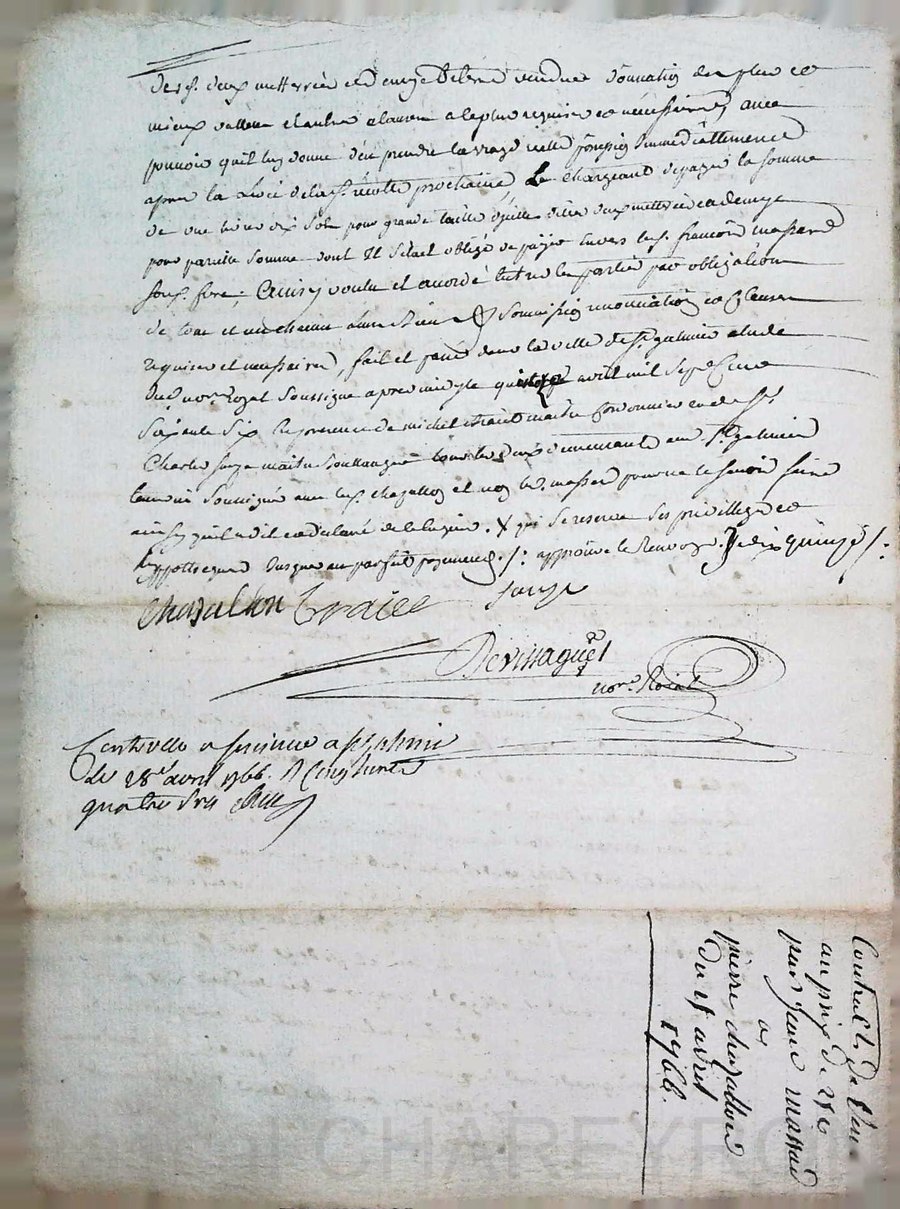 des d. deux metterées et demye de terre vendue donnation du plus ou
mieux vallue et autre clause a ce plus requise et necessaires avec
pouvoir quil luy donne den prendre la vraye reelle pocession Immediattement
apres la levée de la d. recolte prochaine, Le Chargeant de payer la somme
de une livre dix sols pour grande taille desdites deux metterée et demye
pour pareille somme dont Il s'etait obligé de payer Envers led. françois massard
son frere. Ainsy voulu et accordé Entre les parties par obligation
de tout et un chacun leurs biens soumission renonciation et clauses
requises et necessaires, fait et passé dans la ville de St galmier etude
du d. nore royal soussigné apres midy le quinze avril mil Sept Cent
Soixante Six En presence de michel traict maitre Cordonnier et de Sr
Charles maitre Boullanger tous les deux demeurant au d. St galmier
temoins Soussignés avec led. chazallon et non led. massard pour ne le scavoir faire
ainsy quil a dit et declaré de ce requis. X qui se reserve ses privilleges et
hyppotteques Jusques au parfait payement ./. approuve le Renvoy. Je dis quinze ./.
Chazallon Traict
Devissaguet
nore. Roial
Controllé a St galmier
Le 28e avril 1766. R Cinquante
quatre sols
Contract de vente
au prix de
par Jean massard
a
pierre chazallon
Du 15 avril
1766.
CHAREYRON